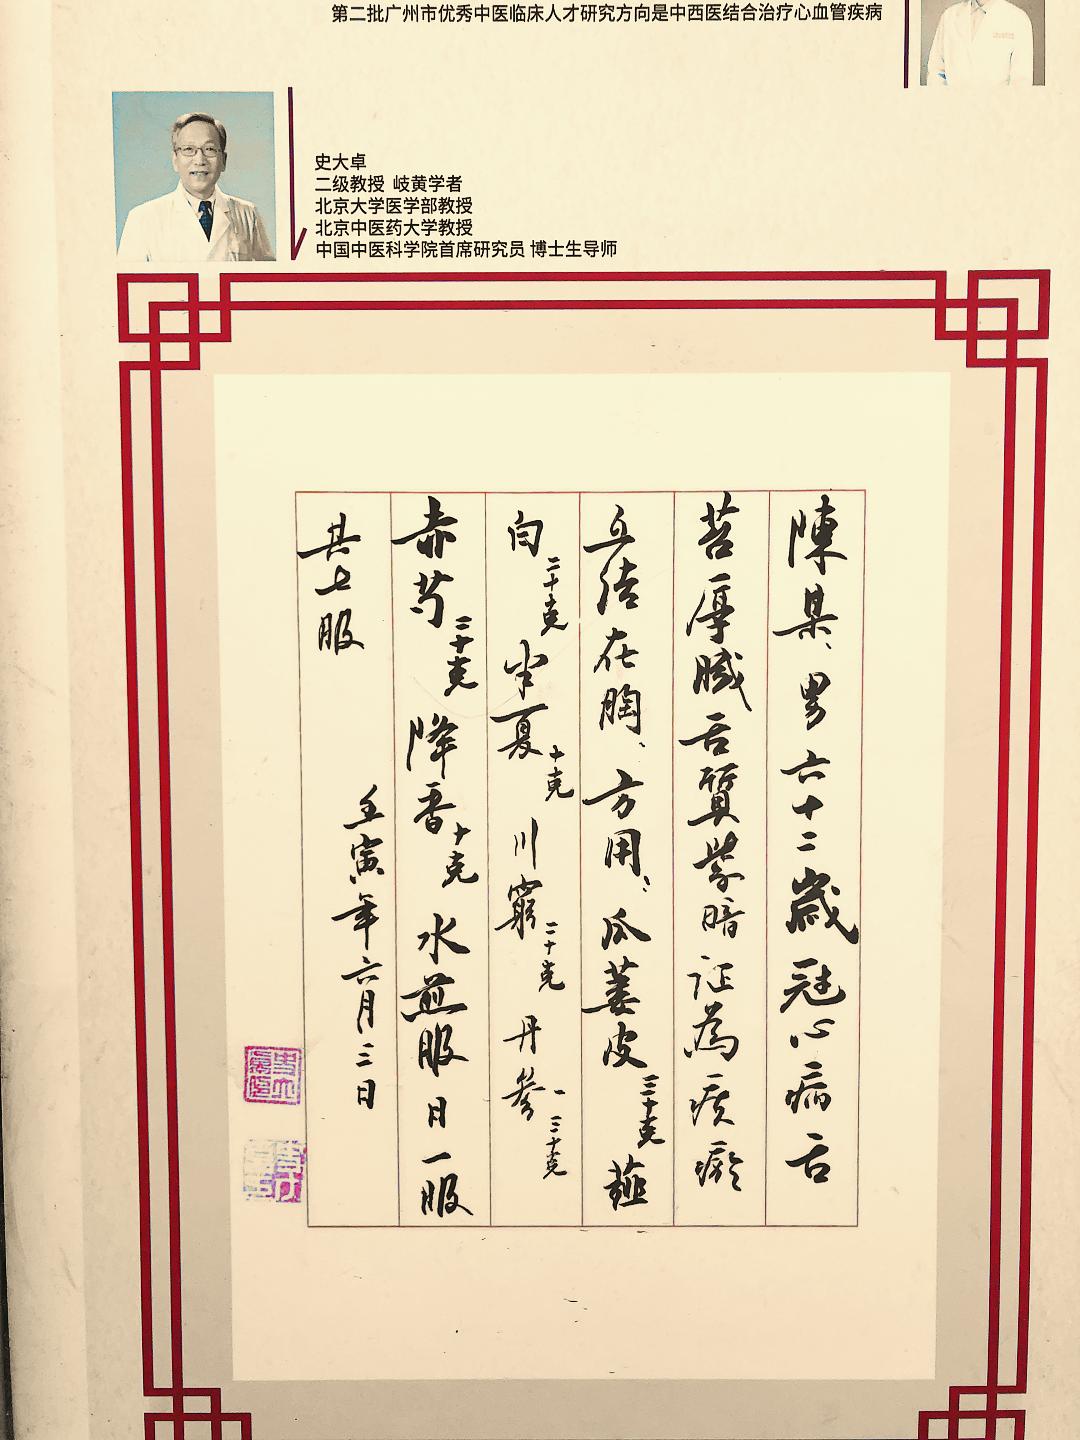 第二批广州市优秀中医临床人才研究方向是中西医结合治疗心血管疾病
史大卓
二级教授 岐黄学者
北京大学医学部教授
北京中医药大学教授
中国中医科学院首席研究员 博士生导师
陳某、男六十二歲冠心病舌
苔厚膩舌質紫暗证為痰瘀
互结在胸、方用：瓜蒌皮三十克薤
白二十克半夏十克川窮二十克丹參二十克
赤芍二十克降香十克水煎服日一服
共七服
壬寅年六月三日